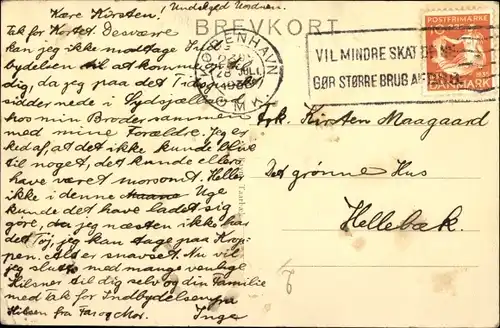 Kære Kirsten! (Undskyld Uordnen.
BREVKORT
Tak for Kortet. Desværre
kan jeg ikke modtage Ind-
bydelsen til at komme op til
dig, da jeg paa det Tidspunkt
sidder nede i Sydsjælland
hos min Broder sammen
med mine Forældre. Jeg er
ked af, at det ikke kunde blive
til noget, det kunde ellers
have været morsomt. Heller
ikke i denne Uge
kunde det have ladet sig
gøre, da jeg næsten ikke har
det Tøj, jeg kan tage paa Krop-
pen. Alt er snavset. Nu vil
jeg slutte med mange venlige
Hilsner til dig selv og din Familie
med Tak for Indbydelsen fra
Hilsen fra Far og Mor. Inga
KØBENHAVN
OMK.
VIL MINDRE SKAT DE HA'
GØR STØRRE BRUG AF
POSTFRIMÆRKE
DANMARK
Frk. Kirsten Maagaard
Det grønne Hus
Hellebæk.